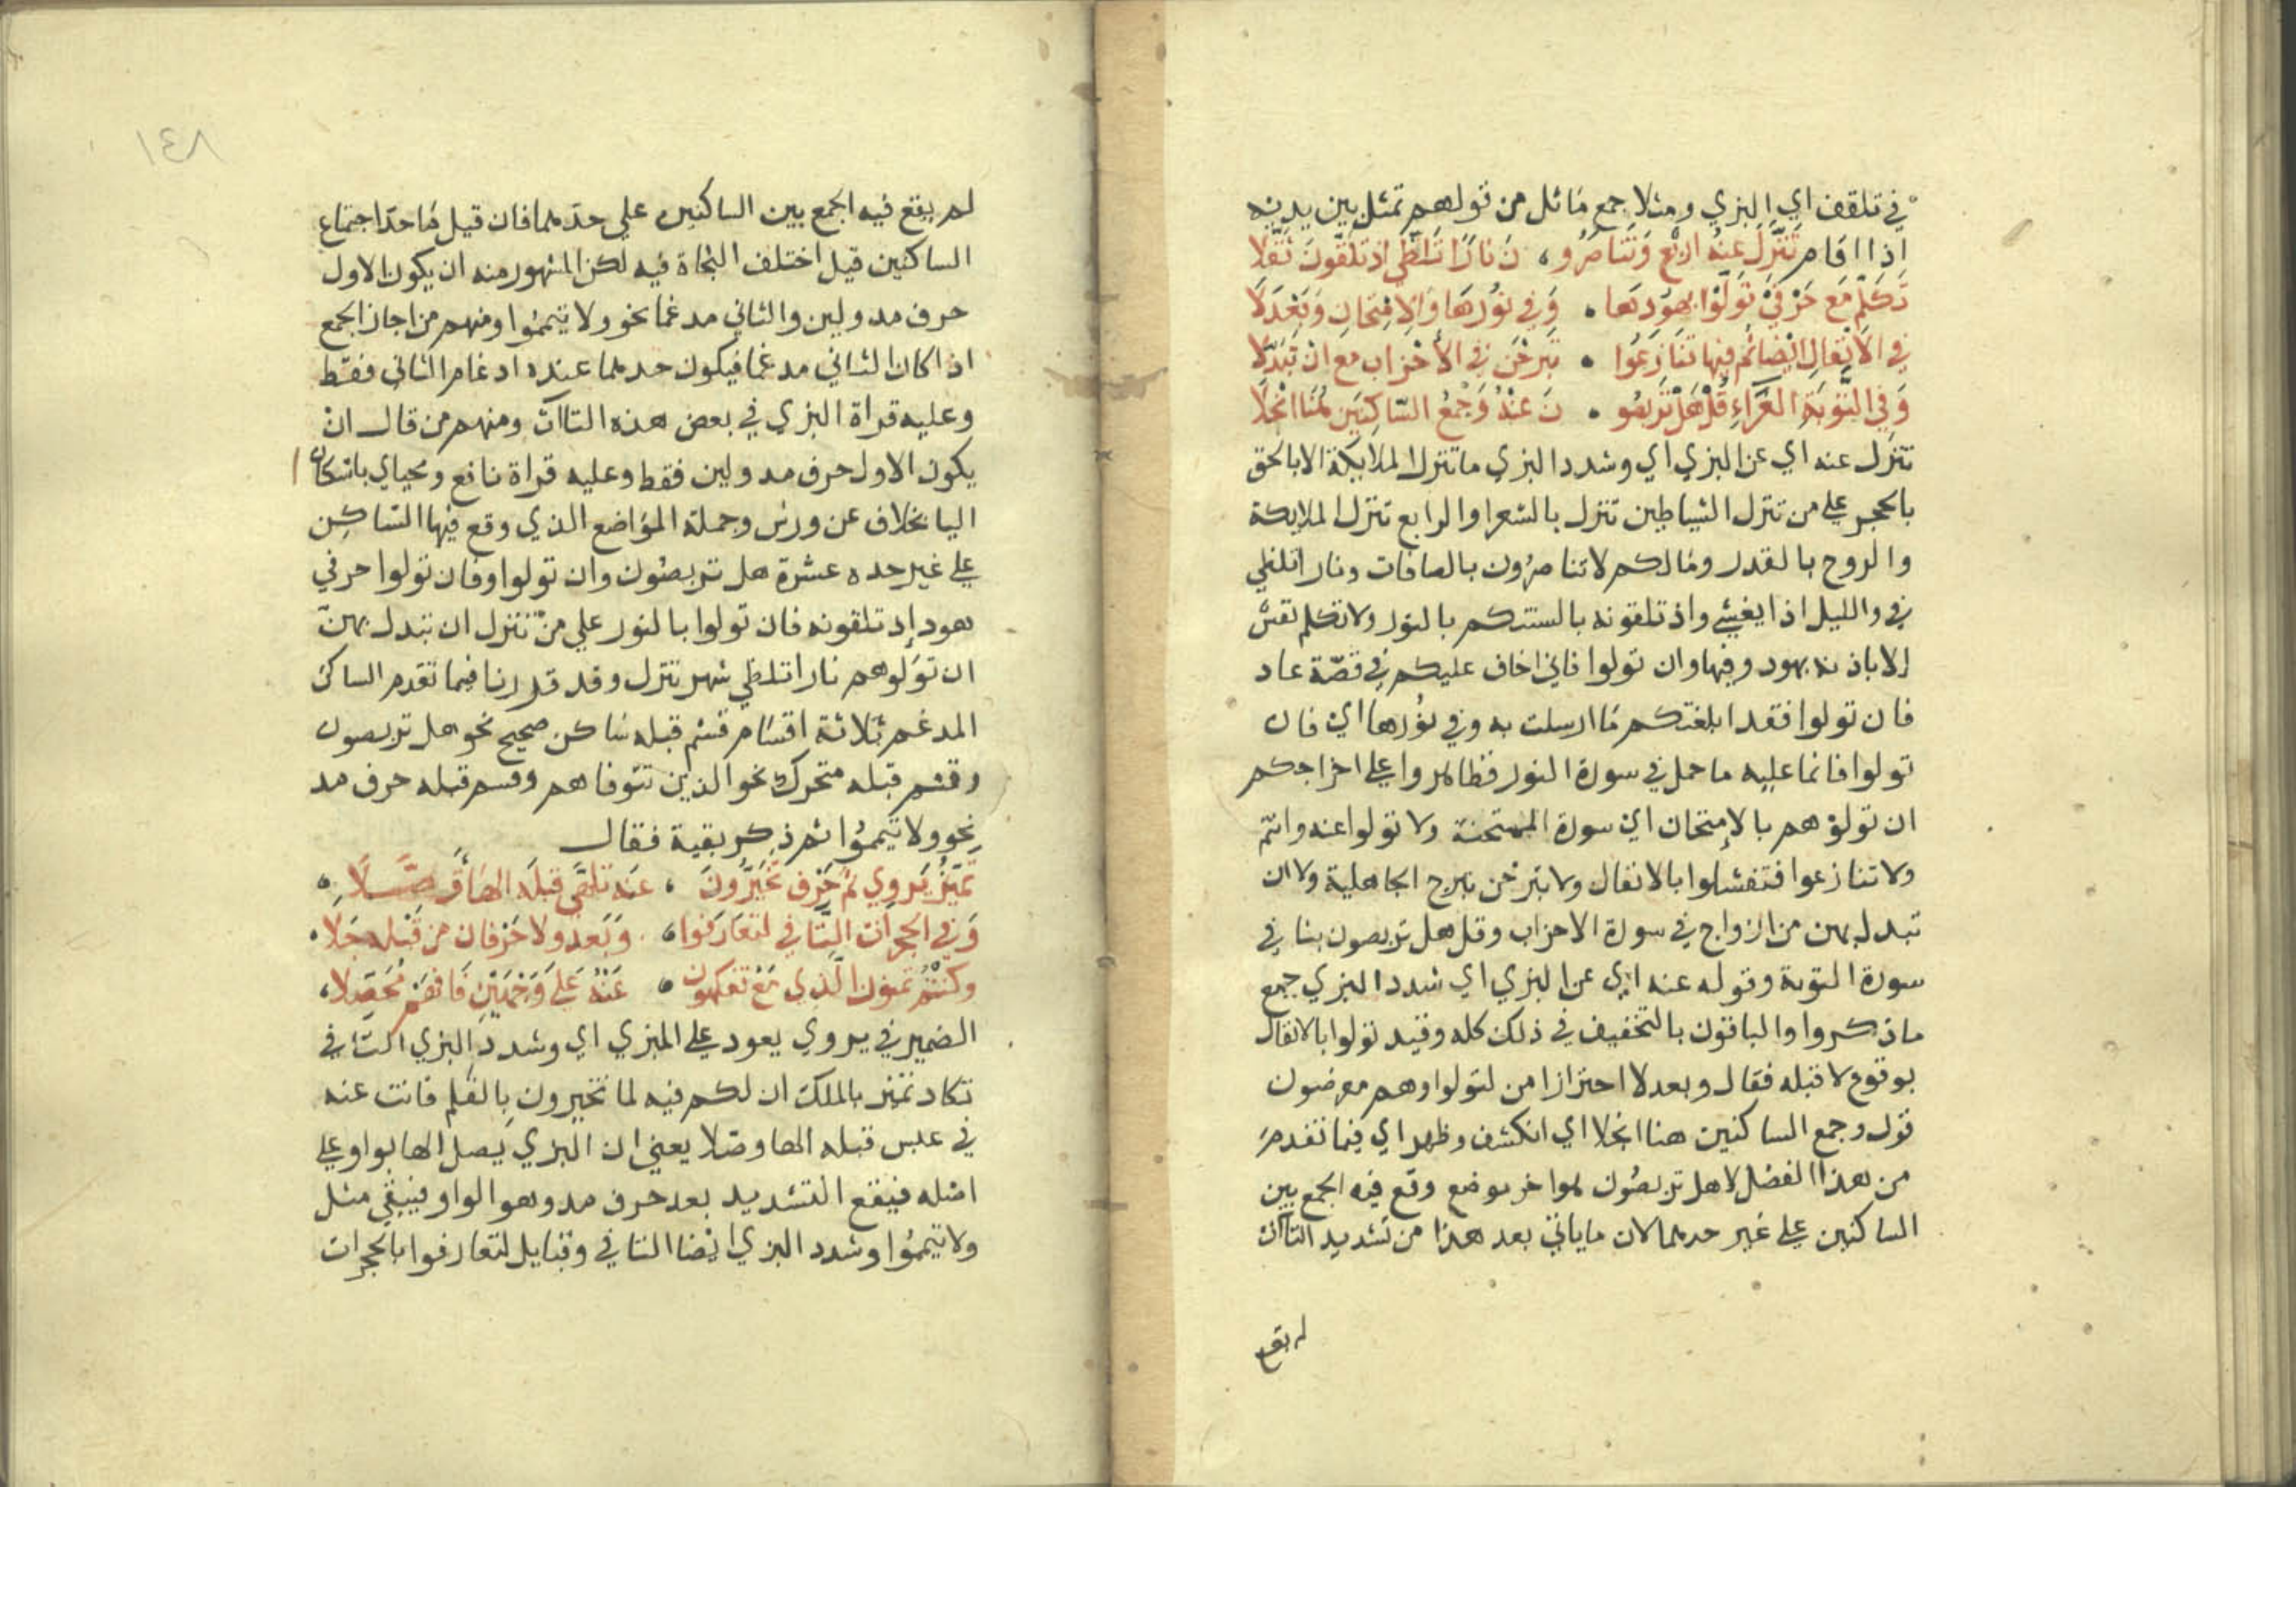 في تلقف اي البزي ومثلا جمع مماثل من قولهم تمثل بين يديه
اذا قام تَنَزَّلُ عَنْهُ اربع وَتَنَاصَرُو، نَ نَارًا تَلَظَّى اذ تَلَقَّوْنَ ثُقِّلَا
تَكَلَّمُ مَع حَرْفَيْ تَوَلَّوْا بِهُودِهَا . وَفي نُورِهَا وَالاِمْتِحَانِ وَبَعْدَ لَا
في الاَنْفَالِ ايْضًا ثُم فِيها تَنَازَعُوا . تَبَرَّجْنَ في الأَحْزَاب مع انْ تَبَدَّلَا
وَفي التَّوْبَةِ الغَرَّاءِ قُلْ هَلْ تَرَبَّصُو . نَ عَنْهُ وَجَمْعُ السَّاكِنَيْنِ هُنَا انْجَلَا
تنزل عنه اي عن البزي اي وشدد البزي ما تنزل الملايكة الا بالحق
بالحجر على من تنزل الشياطين تنزل بالشعرا والرابع تنزل الملايكة
والروح بالقدر ومالكم لا تناصرون بالصافات ونارا تلظي
في والليل اذا يغشي واذ تلقونه بالسنتكم بالنور ولا تكلم نفس
الا باذنه بهود وفيها وان تولوا فاني اخاف عليكم في قصّة عاد
فان تولوا فقد ابلغتكم ما ارسلت به وفي نورها اي فان
تولوا فانما عليه ما حمل في سورة النور وظاهروا على اخراجكم
ان تولوهم بالامتحان اي سورة الممتحنة ولا تولوا عنه وانتم
ولا تنازعوا فتفشلوا بالانفال ولا تبرجن تبرج الجاهلية ولا ان
تبدل بهن من ازواج في سورة الاحزاب وقل هل تربصون بنا في
سورة التوبة وقوله عنه اي عن البزي اي شدد البزي جمع
ما ذكروا والباقون بالتخفيف في ذلك كله وقيد تولوا بالانفال
بوقوع لا قبله فقال وبعد لا احترازا من لتولوا وهم معرضون
قوله وجمع الساكنين هنا انجلا اي انكشف وظهر اي فيما تقدم
من هذا الفصل لا هل تربصون هو اخر موضع وقع فيه الجمع بين
الساكنين على غير حدهما لان ما ياتي بعد هذا من تشديد التاآت
لم يقع
١٤٨
لم يقع فيه الجمع بين الساكنين علي حدهما فان قيل ما حدّ اجتماع
الساكنين قيل اختلف النحاة فيه لكن المشهور منه ان يكون الاول
حرف مد ولين والثاني مدغما نحو ولا تيمموا ومنهم من اجاز الجمع
اذا كان الثاني مدغما فيكون حدهما عنده ادغام الثاني فقط
وعليه قراة البزي في بعض هذه التاآت ومنهم من قال ان
يكون الاول حرف مد ولين فقط وعليه قراة نافع ومحياي باسكان
اليا بخلاف عن ورش وجملة المواضع الذي وقع فيها الساكن
على غير حده عشرة هل تربصون وان تولوا وفان تولوا حرفي
هود إذ تلقونه فان تولوا بالنور علي من تنزل ان تبدل بهن
ان تولوهم نارا تلظي شهر تنزل وقد قدرنا فيما تقدم الساكن
المدغم ثلاثة اقسام قسم قبله ساكن صحيح نحو هل تربصون
وقسم قبله متحرك نحو الذين تتوفاهم وقسم قبله حرف مد
نحو ولا تيمموا ثم ذكر بقية فقال
تَمَيَّزُ يَروي ثم حَرْف تَخَيَّرُونَ . عَنه تلَهَّى قبلَه الهَاءَ وَصَّلَا .
وَفي الحجرات التَّا في لتعارَفُوا . وَبَعْدَ ولا حَرْفَان من قَبْله جَلَا .
وكنْتُمْ تمنون الَّذي مَعْ تفكهون . عَنْهُ عَلَى وَجْهَيْنِ فَافهَم مُحَصِّلا ،
الضمير في يروي يعود على البزي اي وشدد البزي التا في
تكاد تميز بالملك ان لكم فيه لما تخيرون بالقلم فانت عنه
في عبس قبله الها وصّلا يعني ان البزي يصل الها بواو على
اصله فيقع التشديد بعد حرف مد وهو الواو فيبقي مثل
ولا تيمموا وشدد البزي ايضا التا في وقبايل لتعارفوا بالحجرات